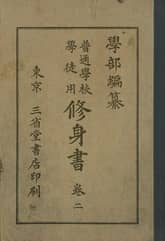 學部編纂
普通學校
學徒用
修身書 卷二
東京 三省堂書店印刷